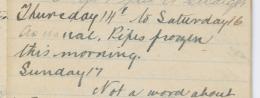 Thursday 14th to Saturday 16
As usual, Pipes frozen
this morning.
Sunday 17
Not a word about